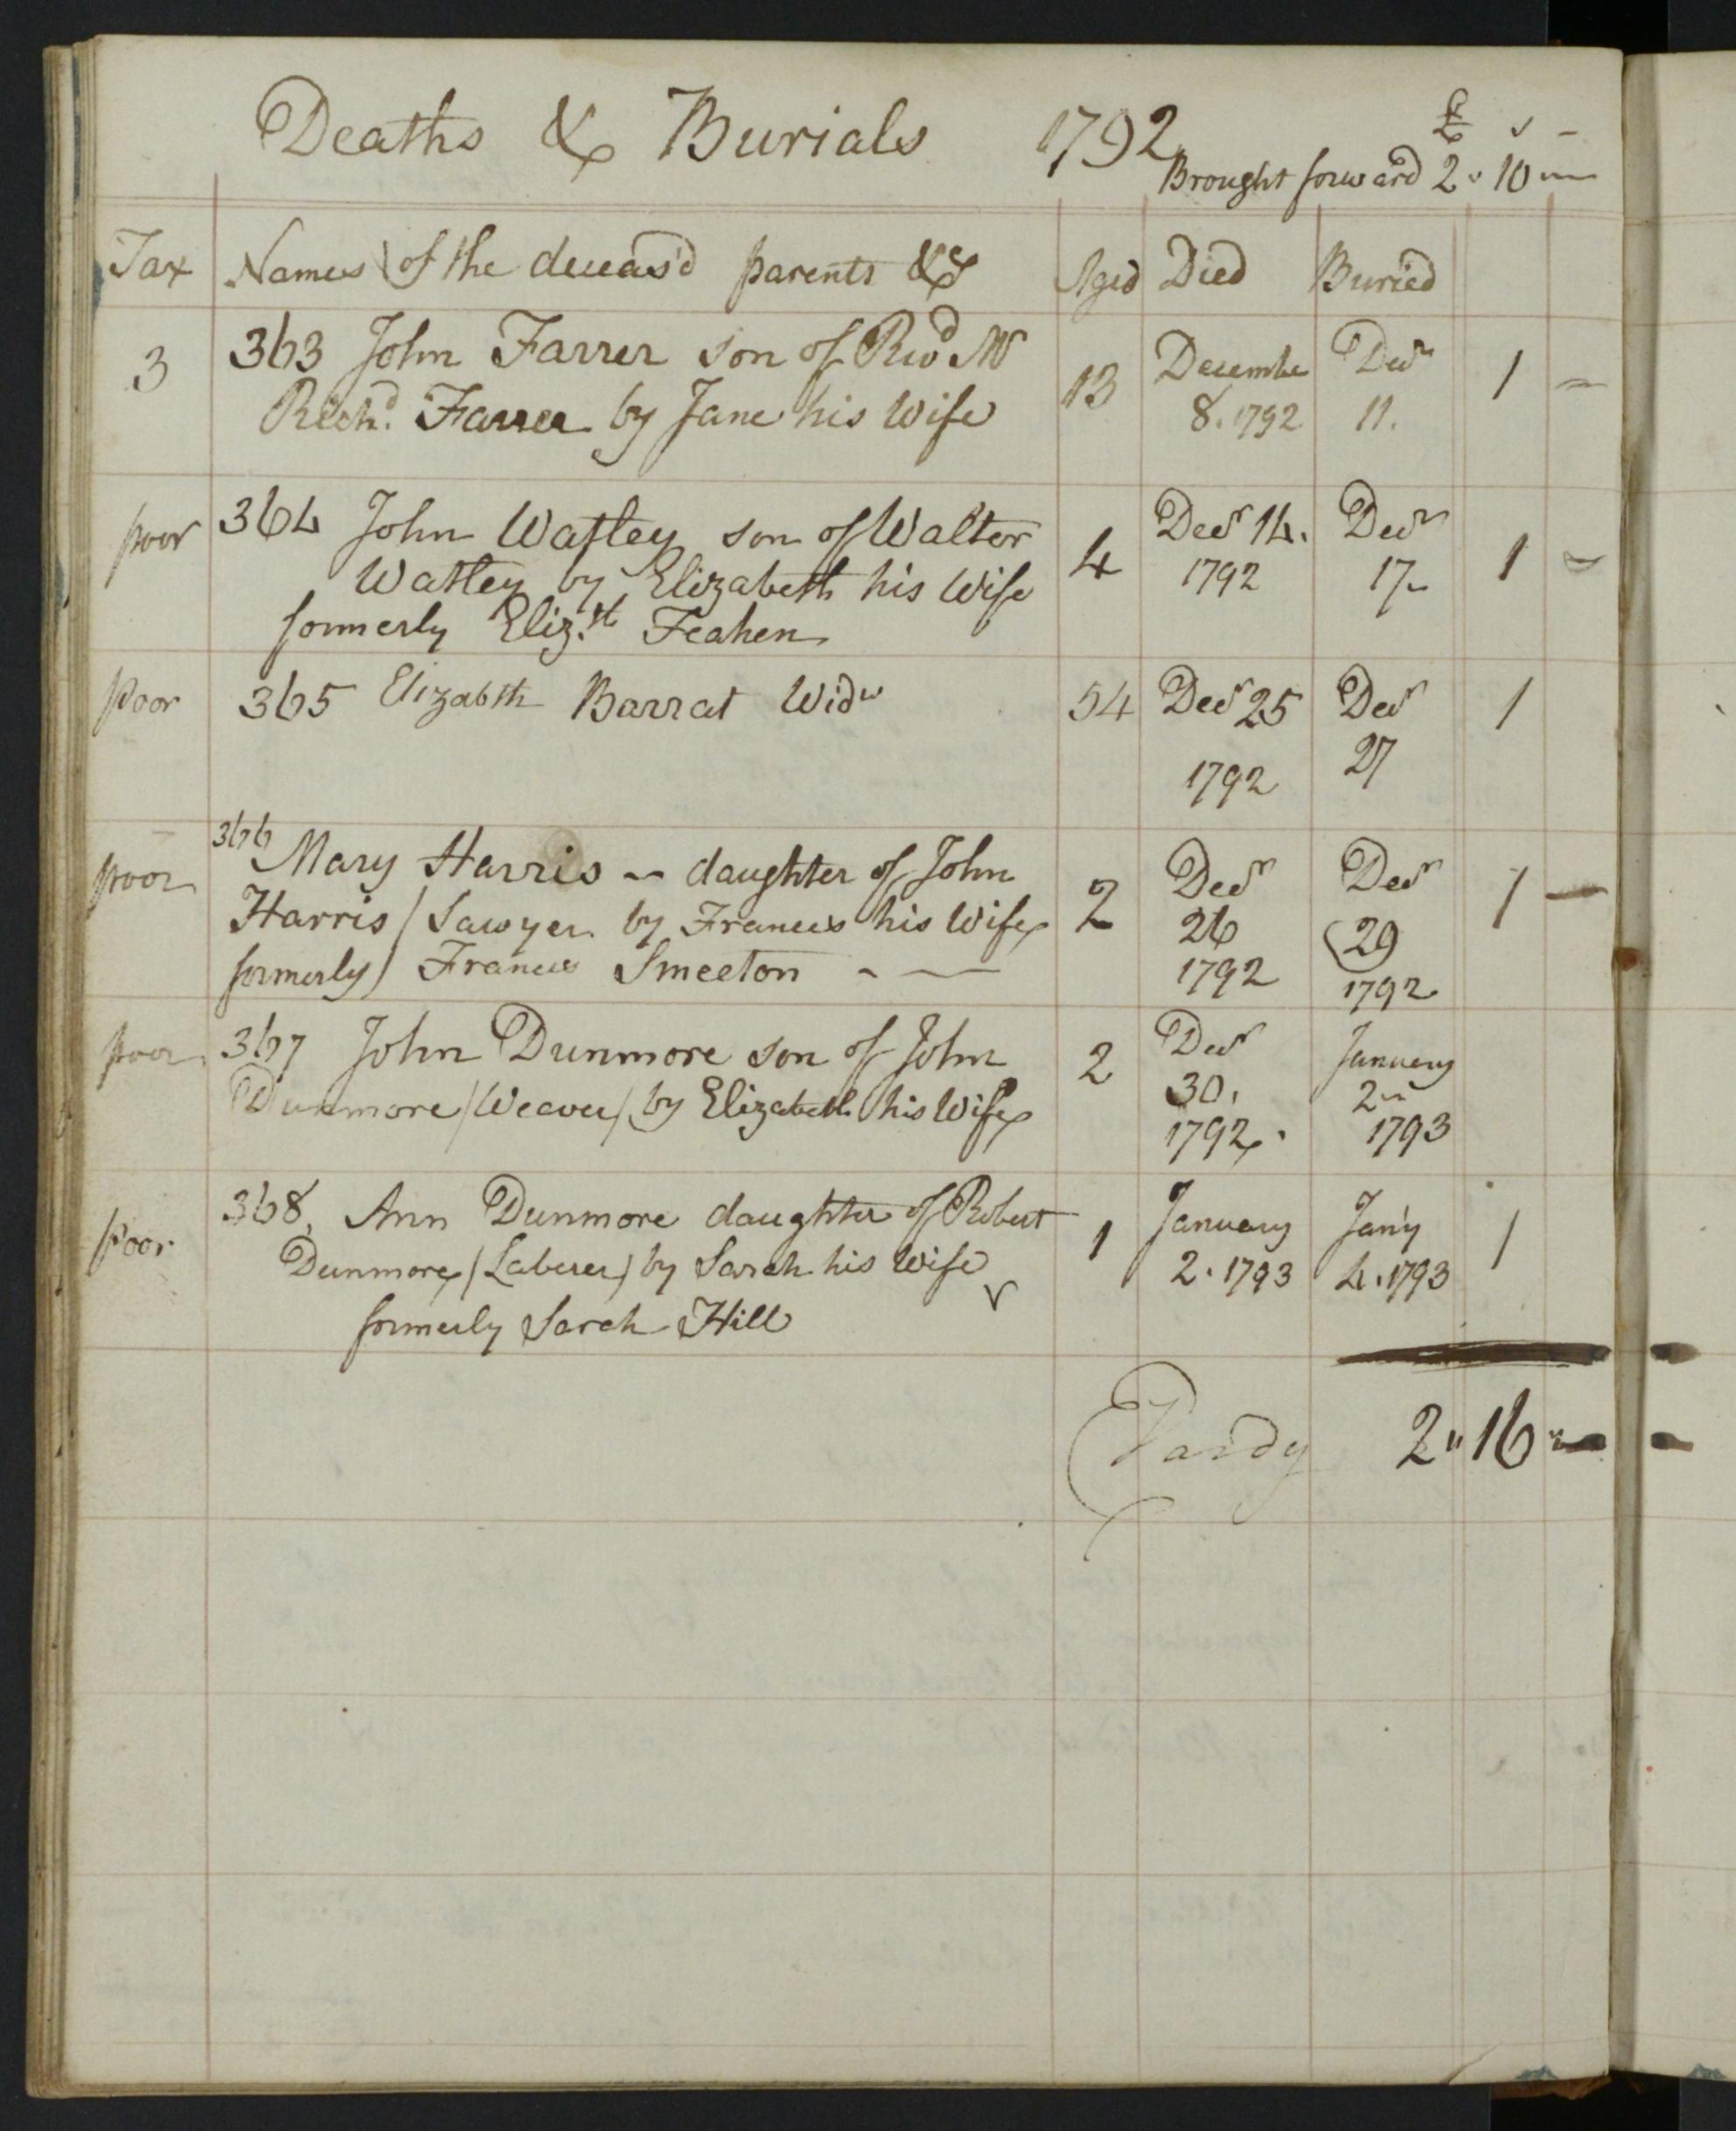 Deaths & Burials 1792
£ s -
Brought forward 2 " 10 -
Tax Names of the deceas'd parents &c Aged Died Buried
3 363 John Farrer son of Revd Mr 13 December Decr 1 -
Richd. Farrer by Jane his Wife 8. 1792 11.
poor 364 John Watley son of Walter 4 Decr 14. Decr 1 -
Watley by Elizabeth his Wife 1792 17
formerly Eliz.th Feahen
Poor 365 Elizabth Barrat Widw 54 Decr 25 Decr 1
1792 27
poor 366 Mary Harris - daughter of John 2 Decr Decr 1 -
Harris / Sawyer by Frances his Wife 26 29
formerly) Frances Smeeton - - 1792 1792
poor 367 John Dunmore son of John 2 Decr January
Dunmore /Weaver/ by Elizabeth his Wife 30. 2
1792. 1793
Poor 368, Ann Dunmore daughter of Robert 1 January Jan'y 1
Dunmore /Laberer/ by Sarah his Wife 2. 1793 4. 1793
formerly Sarah Hill
2 " 16 " -